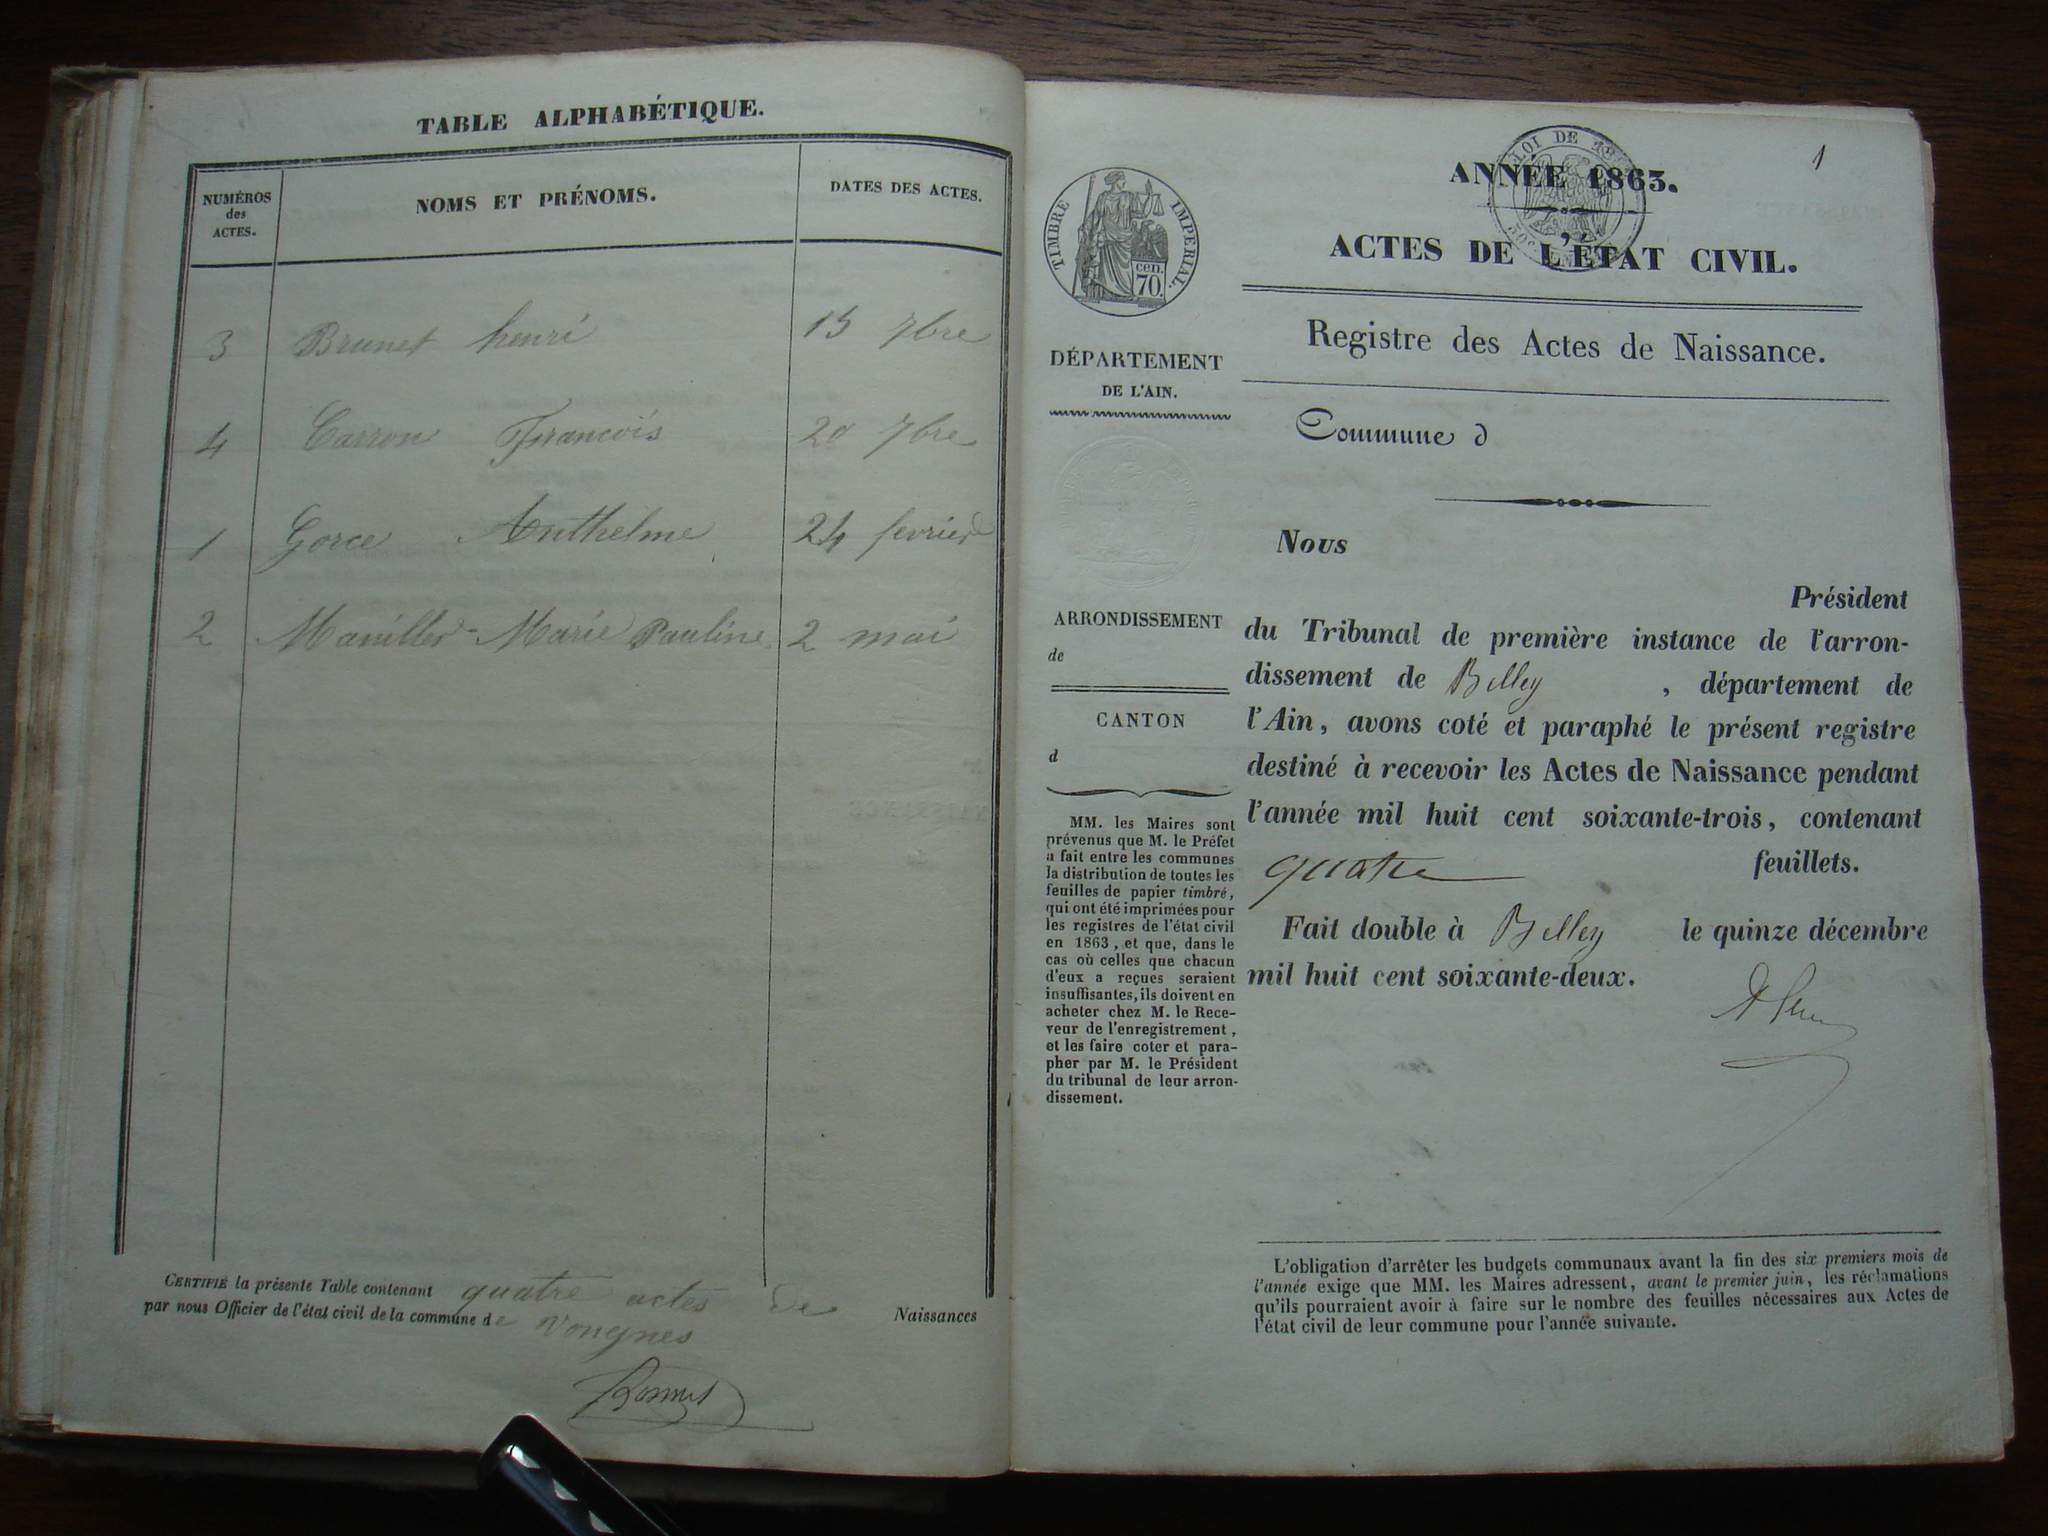 TABLE ALPHABÉTIQUE.
NUMÉROS des ACTES.
NOMS ET PRÉNOMS.
DATES DES ACTES.
3 Brunet henri 15 7bre
4 Carron François 20 7bre
1 Gorce Anthelme 24 fevrier
2 Manillier Marie Pauline 2 mai
CERTIFIÉ la présente Table contenant quatre actes de Naissances
par nous Officier de l'état civil de la commune de Vongnes
Bonnet
1
LOI DE
ANNÉE 1863.
ACTES DE L'ÉTAT CIVIL.
TIMBRE IMPERIAL.
cen. 70.
DÉPARTEMENT
DE L'AIN.
ARRONDISSEMENT
de
CANTON
d
MM. les Maires sont
prévenus que M. le Préfet
a fait entre les communes
la distribution de toutes les
feuilles de papier timbré,
qui ont été imprimées pour
les registres de l'état civil
en 1863, et que, dans le
cas où celles que chacun
d'eux a reçues seraient
insuffisantes, ils doivent en
acheter chez M. le Rece-
veur de l'enregistrement,
et les faire coter et para-
pher par M. le Président
du tribunal de leur arron-
dissement.
Registre des Actes de Naissance.
Commune d
Nous
Président
du Tribunal de première instance de l'arron-
dissement de Belley , département de
l'Ain, avons coté et paraphé le présent registre
destiné à recevoir les Actes de Naissance pendant
l'année mil huit cent soixante-trois, contenant
quatre feuillets.
Fait double à Belley le quinze décembre
mil huit cent soixante-deux.
L'obligation d'arrêter les budgets communaux avant la fin des six premiers mois de
l'année exige que MM. les Maires adressent, avant le premier juin, les réclamations
qu'ils pourraient avoir à faire sur le nombre des feuilles nécessaires aux Actes de
l'état civil de leur commune pour l'année suivante.